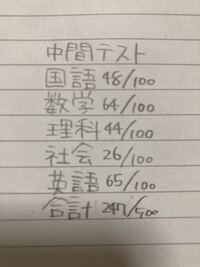 中間テスト
国語 48/100
数学 64/100
理科 44/100
社会 26/100
英語 65/100
合計 247/500